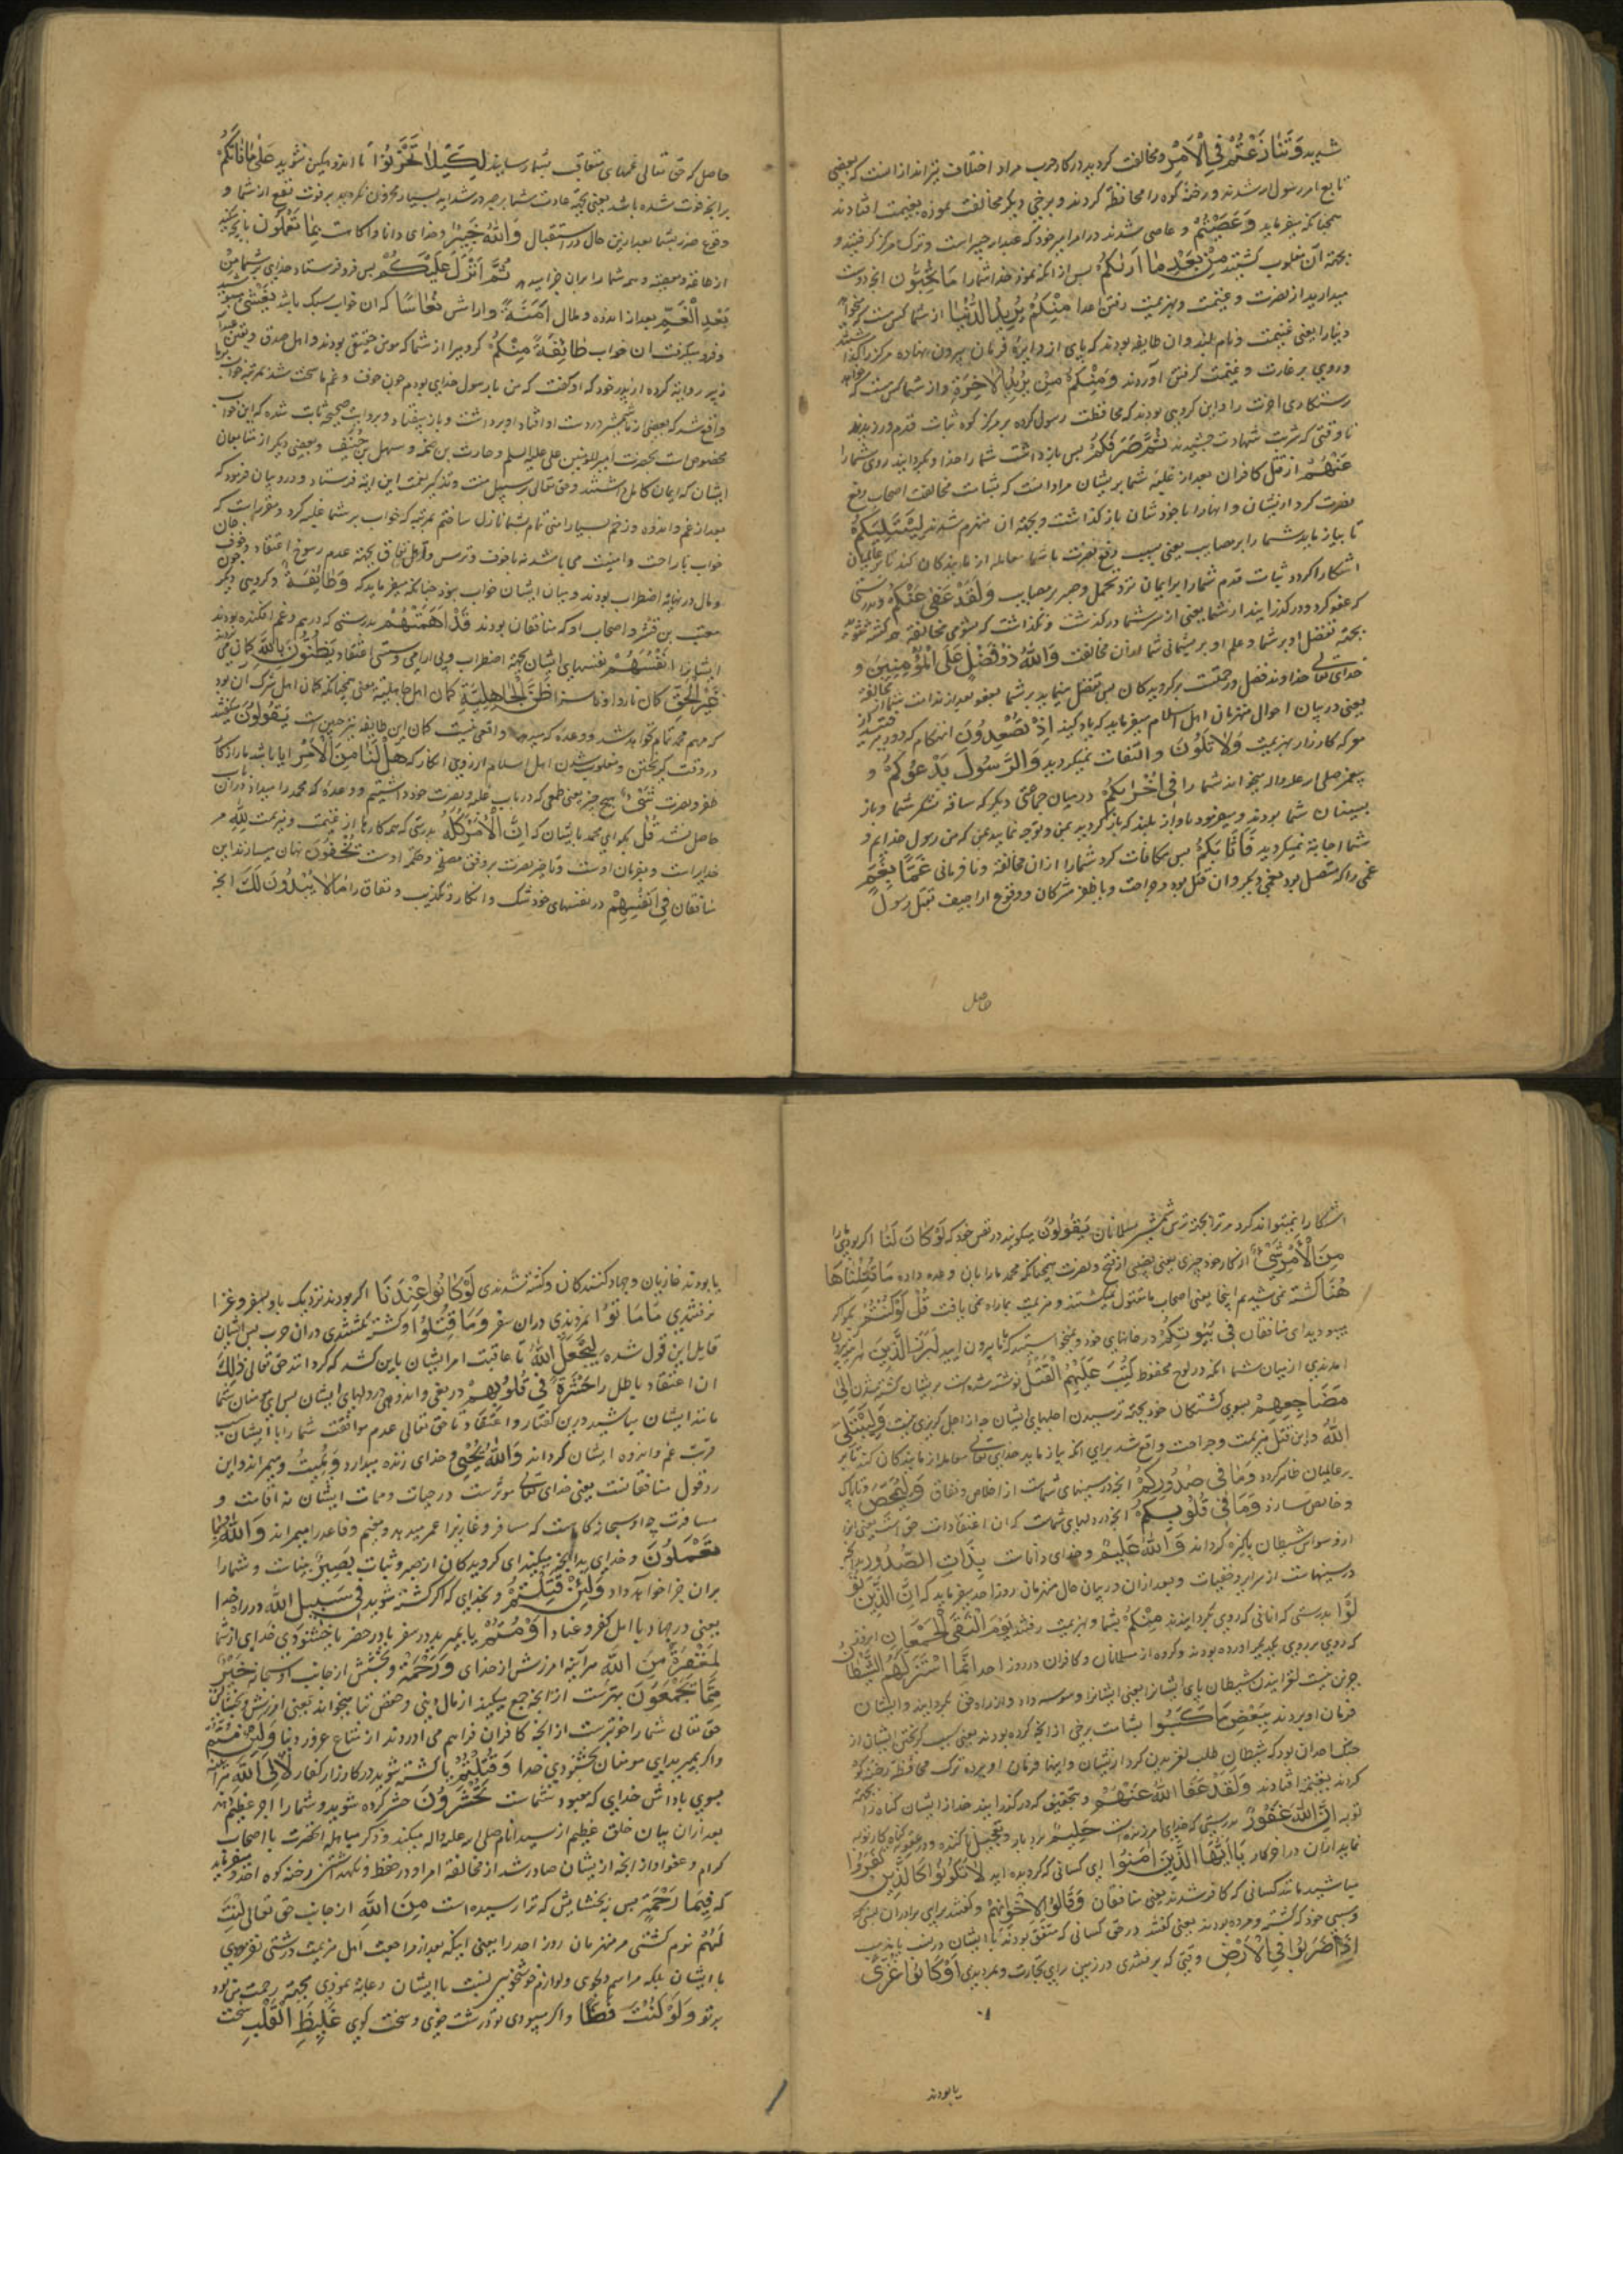 شدید وَتَنَازَعْتُمْ فِي الْاَمْرِ و مخالفت کردید در کار حرب مراد اختلاف تیراندازانست که بعضی
تابع امر رسول شدند و رخنهٔ کوه را محافظة کردند و برخی دیگر مخالفت نموده بغنیمت افتادند
همچنانکه میفرماید وَعَصَيْتُمْ و عاصی شدند در امر امیر خود که عبدالله جبیر است و ترک مرکز گرفتید و
بجهة آن مغلوب گشتید مِنْ بَعْدِ مَا اَرٰيكُمْ پس از انکه نمود خدا شما را مَا تُحِبُّونَ انچه دوست
میدارید از نصرت و غنیمت و هزیمت رفتن اعدا مِنْكُمْ مَنْ يُرِيدُ الدُّنْيَا از شما کس هست که میخواهد
دنیا را یعنی غنیمت و نام بلند و ان طایفه بودند که پای از دایرهٔ فرمان بیرون نهاده مرکز را گذاشتند
و روی بر غارت و غنیمت گرفتن آوردند وَمِنْكُمْ مَنْ يُرِيدُ الْاٰخِرَةَ و از شما کس هست که میخواهد
رستگاری اخرت را و این گروهی بودند که محافظت رسول کرده بر مرکز کوه ثبات قدم ورزیدند
تا وقتی که شربت شهادت چشیدند ثُمَّ صَرَفَكُمْ پس بازداشت شما را خدا و بگردانید روی شما را
عَنْهُمْ از قتل کافران بعد از غلبهٔ شما بریشان مراد انست که بشامت مخالفت اصحاب رفع
نصرت کرد از ایشان و انها را با خودشان بازگذاشت و بجهة ان منهزم شدند لِيَبْتَلِيَكُمْ
تا بیازماید شما را بر مصایب یعنی بسبب رفع نصرت با شما معامله ازمایندکان کند تا بر عالمیان
اشکارا گردد ثبات قدم شما را بر ایمان نزد تحمل و صبر بر مصایب وَلَقَدْ عَفَى عَنْكُمْ و بدرستی
که عفو کرد و درگذرانید از شما یعنی از سر شما درگذشت و نگذاشت که بشومی مخالفة همه کشته شوید
بجهة تفضل او بر شما و علم او بر پشیمانی شما از آن مخالفت وَاللّٰهُ ذُو فَضْلٍ عَلَى الْمُؤْمِنِينَ و
خدای تعالی خداوند فضل و رحمتست بر گرویدکان پس تفضل مینماید بر شما بعفو بعد از ندامت شما از مخالفة
یعنی در بیان احوال منهزمان اهل اسلام میفرماید که یاد کنید اِذْ تُصْعِدُونَ انهنگام که دور میرفتید از
معرکه کارزار بهزیمت وَلَا تَلْوُنَ و التفات نمیکردید وَالرَّسُولُ يَدْعُوكُمْ و
پیغمبر صلی الله علیه واله میخواند شما را فِي اُخْرٰيكُمْ در میان جماعتی دیگر که ساقه لشکر شما و باز
پسینان شما بودند و میفرمود باواز بلند که بازگردید بمن و توجه نمایید بمن که من رسول خدایم و
شما اجابة نمیکردید فَاَثَابَكُمْ پس مکافات کرد شما را از ان مخالفة و نافرمانی غَمًّا بِغَمٍّ
غمی را که متصل بود بغمی دیگر و ان قتل بود و جراحت و یا ظفر مشرکان و وقوع اراجیف بقتل رسول
حاصل
حاصل که حق تعالی غمهای متعاقب بشما رسانید لِكَيْلَا تَحْزَنُوا تا اندوهگین نشوید عَلٰى مَا فَاتَكُمْ
بر انچه فوت شده باشد یعنی بجهة عادت شما بر صبر در شداید بسیار محزون نگردید بر فوت نفع از شما و
وقوع ضرر بشما بعد ازین حال در استقبال وَاللّٰهُ خَبِيرٌ و خدای دانا و اگاهست بِمَا تَعْمَلُونَ بانچه میکنید
از طاعة و معصیة و همه شما را بران جزا میدهد ثُمَّ اَنْزَلَ عَلَيْكُمْ پس فرو فرستاد خدای بر شما مِنْ
بَعْدِ الْغَمِّ بعد از اندوه و ملال اَمَنَةً و ارامش نُعَاسًا که ان خواب سبک باشد يَغْشٰى
و فرو میگرفت ان خواب طَائِفَةً مِنْكُمْ گروهی را از شما که مومن حقیقی بودند و اهل صدق و یقین
زبیر روایة کرده از پدر خود که او گفت که من با رسول خدای بودم چون خوف و غم ما سخت شد
واقع شد که بعضی از ما شمشیر در دست او افتاد و برداشت و باز بیفتاد و بروایت صحیحه ثابت شده که این خواب
مخصوص است بحضرت امیرالمؤمنین علی علیه السلم و حارث بن صمه و سهل بن حُنَیف و بعضی دیگر از متابعان
ایشان که ایمان کامل داشتند و حق تعالی بر سبیل منت و تذکیر نعمت این ایة فرستاد و در و بیان فرمود که
بعد از غم و اندوه و زخم بسیار امنی تمام بشما نازل ساختم بمرتبه که خواب بر شما غلبه کرد
خواب با راحت و امنیت می باشد نه با خوف و ترس و اهل نفاق بجهة عدم رسوخ اعتقاد و خوف جان
و مال در نهایة اضطراب بودند و بیان ایشان خواب نبود چنانکه میفرماید که وَطَائِفَةٌ و گروهی دیگر
معتب بن قشیر و اصحاب او که منافقان بودند قَدْ اَهَمَّتْهُمْ بدرستی که در هم و غم افکنده بودند
ایشانرا اَنْفُسُهُمْ نفسهای ایشان بجهة اضطراب و بی ارامی و سستی اعتقاد يَظُنُّونَ بِاللّٰهِ گمان می برند
غَيْرَ الْحَقِّ گمان ناروا و ناسزا ظَنَّ الْجَاهِلِيَّةِ گمان اهل جاهلیة یعنی همچنانکه گمان اهل شرک ان بود
که مهم محمد تمام نخواهد شد و وعدهٔ که میدهد واقعی نیست گمان این طایفه نیز چنین است يَقُولُونَ میگویند
در وقت گریختن و مغلوب شدن اهل اسلام از روی انکار که هَلْ لَنَا مِنَ الْاَمْرِ ایا باشد ما را از کار
ظفر و نصرت شَيْءٍ هیچ چیز یعنی طمعی که در باب غلبه و نصرت خود داشتیم و وعدهٔ که محمد را میداد دران باب
حاصل نشد قُلْ بگو ای محمد بایشان که اِنَّ الْاَمْرَ كُلَّهُ بدرستی که همه کارها از غنیمت و هزیمت لِلّٰهِ مر
خدایراست و بفرمان اوست و تاخیر نصرت بر وفق مصلحة و حکمة اوست يُخْفُونَ نهان میسازند این
منافقان فِي اَنْفُسِهِمْ در نفسهای خود شک و انکار و تکذیب و نفاق را مَا لَا يُبْدُونَ لَكَ انچه
اشکارا نمیتوانند کرد مر ترا بجهة ترس شمشیر مسلمانان يَقُولُونَ میگویند در نفس خود که لَوْ كَانَ لَنَا اگر بودی ما را
مِنَ الْاَمْرِ شَيْءٌ از کار خود چیزی یعنی نصیبی از فتح و نصرت همچنانکه محمد ما را بان وعده داده مَا قُتِلْنَا هَا
هُنَا کشته نمی شدیم اینجا یعنی اصحاب ما مقتول نمیگشتند و هزیمت بما راه نمی یافت قُلْ لَوْ كُنْتُمْ بگو اگر
میبودید ای منافقان فِي بُيُوتِكُمْ در خانهای خود و نمیخواستید که بیرون ایید لَبَرَزَ الَّذِينَ هر اینه بیرون
امدندی از میان شما انکه در لوح محفوظ كُتِبَ عَلَيْهِمُ الْقَتْلُ نوشته شده است بریشان کشته شدن اِلٰى
مَضَاجِعِهِمْ بسوی کشتنگاه خود بجهة رسیدن اجلهای ایشان چه از اجل گریزی نیست وَلِيَبْتَلِيَ
اللّٰهُ و این قتل و هزیمت و جراحت واقع شد برای انکه بیازماید خدای تعالی معامله ازمایندکان کند تا بر
بر عالمیان ظاهر گردد وَمَا فِي صُدُورِكُمْ انچه در سینهای شماست از اخلاص و نفاق وَلِيُمَحِّصَ و تا پاک
و خالص سازد وَمَا فِي قُلُوبِكُمْ انچه در دلهای شماست که ان اعتقادات حق است یعنی انرا
از وسواس شیطان پاکیزه گرداند وَاللّٰهُ عَلِيمٌ و خدای داناست بِذَاتِ الصُّدُورِ بدانچه
در سینهاست از سرایر و خفیات و بعد ازان در بیان حال منهزمان روز احد میفرماید که اِنَّ الَّذِينَ تَوَ
لَّوْا بدرستی که انانی که روی بگردانیدند مِنْكُمْ از شما و بهزیمت رفتند يَوْمَ الْتَقَى الْجَمْعَانِ انروز
که روی بر روی یکدیگر اورده بودند دو گروه از مسلمانان و کافران در روز احد اِنَّمَا اسْتَزَلَّهُمُ الشَّيْطَانُ
جز این نیست لغزانیدن شیطان پای ایشانرا یعنی ایشانرا وسوسه داد و از راه حق بگردانید و ایشان
فرمان او بردند بِبَعْضِ مَا كَسَبُوا بشامت برخی از انچه کرده بودند یعنی سبب گریختن ایشان از
جنگ احد ان بود که شیطان طلب لغزیدن کرد از ایشان و اینها فرمان او برده ترک محافظة رخنه کوه
کردند بغنیمة افتادند وَلَقَدْ عَفَا اللّٰهُ عَنْهُمْ و بتحقیق که درگذرانید خدا از ایشان گناه را بجهة
توبه اِنَّ اللّٰهَ غَفُورٌ بدرستی که خدای امرزنده است حَلِيمٌ بردبار و تعجیل ناکننده در عقوبت گناه کار تا توبه
نماید ازان در اخر کار يَا اَيُّهَا الَّذِينَ اٰمَنُوا ای کسانی که گرویده اید لَا تَكُونُوا كَالَّذِينَ كَفَرُوا
مباشید مانند کسانی که کافر شدند یعنی منافقان وَقَالُوا لِاِخْوَانِهِمْ و گفتند برای برادران
نسبی خود که کشته و مرده بودند یعنی گفتند در حق کسانی که متفق بودند با ایشان در نسب یا مذهب
اِذَا ضَرَبُوا فِي الْاَرْضِ وقتی که برفتندی در زمین برای تجارت و بمردندی اَوْ كَانُوا غُزًّى
یا بودند
یا بودند غازیان و جهاد کنندکان و کشته شدندی لَوْ كَانُوا عِنْدَنَا اگر بودند نزدیک ما و بسفر و غزا
نرفتندی مَا مَاتُوا نمردندی دران سفر وَمَا قُتِلُوا و کشته نگشتندی دران حرب پس ایشان
قایل این قول شده لِيَجْعَلَ اللّٰهُ تا عاقبت امر ایشان باین کشد که گرداند حق تعالی ذٰلِكَ
ان اعتقاد باطل را حَسْرَةً فِي قُلُوبِهِمْ دریغی و اندوهی در دلهای ایشان پس ای مومنان شما
مانند ایشان مباشید درین گفتار و اعتقاد تا حق تعالی عدم موافقت شما را با ایشان سبب
قربت غم و اندوه ایشان گرداند وَاللّٰهُ يُحْيِي و خدای زنده میدارد وَيُمِيتُ و میمیراند و این
رد قول منافقانست یعنی خدای تعالی موثرست در حیات و ممات ایشان نه اقامت و
مسافرت چه او سبحانه گاهست که مسافر و غازیرا عمر میدهد و مقیم و قاعد را میمیراند وَاللّٰهُ بِمَا
تَعْمَلُونَ و خدای بدانچه میکنید ای گرویدکان از صبر و ثبات بَصِيرٌ بیناست و شما را
بران جزا خواهد داد وَلَئِنْ قُتِلْتُمْ و بخدای که اگر کشته شوید فِي سَبِيلِ اللّٰهِ در راه خدا
یعنی در جهاد با اهل کفر و عناد اَوْ مُتُّمْ یا بمیرید در سفر یا در حضر با خوشنودی خدای از شما
لَمَغْفِرَةٌ مِنَ اللّٰهِ هر آینه امرزش از خدای وَرَحْمَةٌ و بخشش از جانب او سبحانه خَيْرٌ
مِمَّا تَجْمَعُونَ بهترست از انچه جمع میکنید از مال دنیی و
حق تعالی شما را خوبترست از انچه کافران فراهم می اوردند از متاع غرور دنیا وَلَئِنْ مُتُّمْ
و اگر بمیرید ای مومنان بخشنودی خدا وَقُتِلْتُمْ یا کشته شوید در کارزار کفار لَاِلَى اللّٰهِ هر آینه
بسوی پاداش خدایی که معبود شماست تُحْشَرُونَ حشر کرده شوید و شما را اجر عظیم دهد
بعد ازان بیان خلق عظیم از سید انام صلی الله علیه واله میکند و ذکر مباهله انحضرت با اصحاب
کرام و عفو او از انچه از ایشان صادر شد از مخالفة امر او در حفظ و نگهداشتن رخنه کوه احد و میفرماید
که فَبِمَا رَحْمَةٍ پس ببخشایش که ترا رسیده است مِنَ اللّٰهِ از جانب حق تعالی لِنْتَ
لَهُمْ نرم گشتی مر منهزمان روز احد را یعنی اینکه بعد از مراجعت اهل هزیمت درشتی نفرمودی
با ایشان بلکه مراسم دلجویی و لوازم خوشخویی نسبت با ایشان رعایة نمودی بجهة رحمت من بود
بر تو وَلَوْ كُنْتَ فَظًّا و اگر میبودی تو درشت خوی و سخت گوی غَلِيظَ الْقَلْبِ سخت